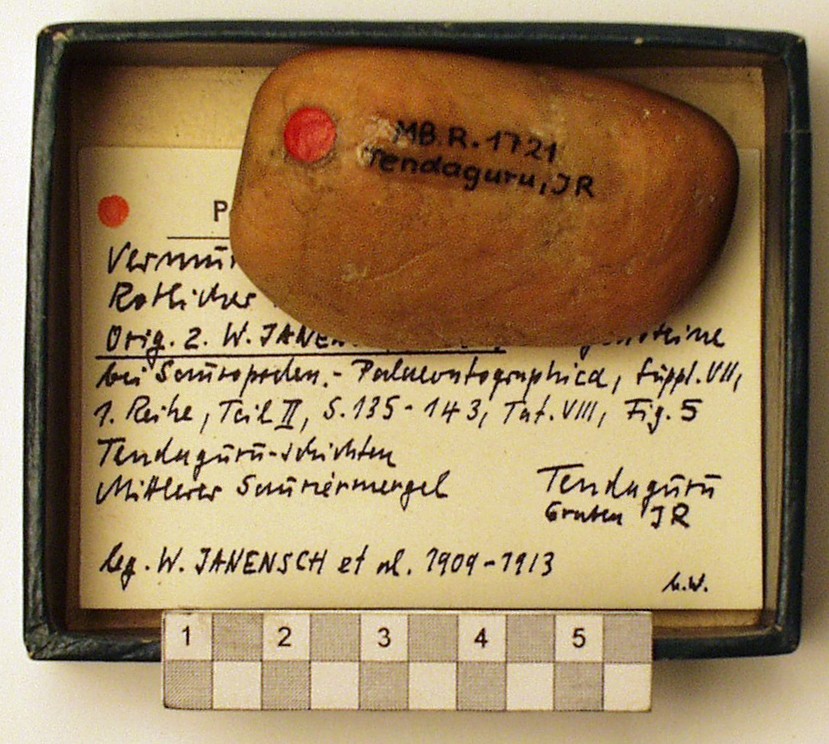 MB.R.1721
Tendaguru, JR
P
Vermu
Rötlicher
Orig. z. W. JANEN
bei Sauropoden.- Palaeontographica, Suppl. VII,
1. Reihe, Teil II, S. 135-143, Taf. VIII, Fig. 5
Tendaguru-Schichten
Mittlerer Sauriermergel
Tendaguru
Graben JR
leg. W. JANENSCH et al. 1909-1913
1 2 3 4 5